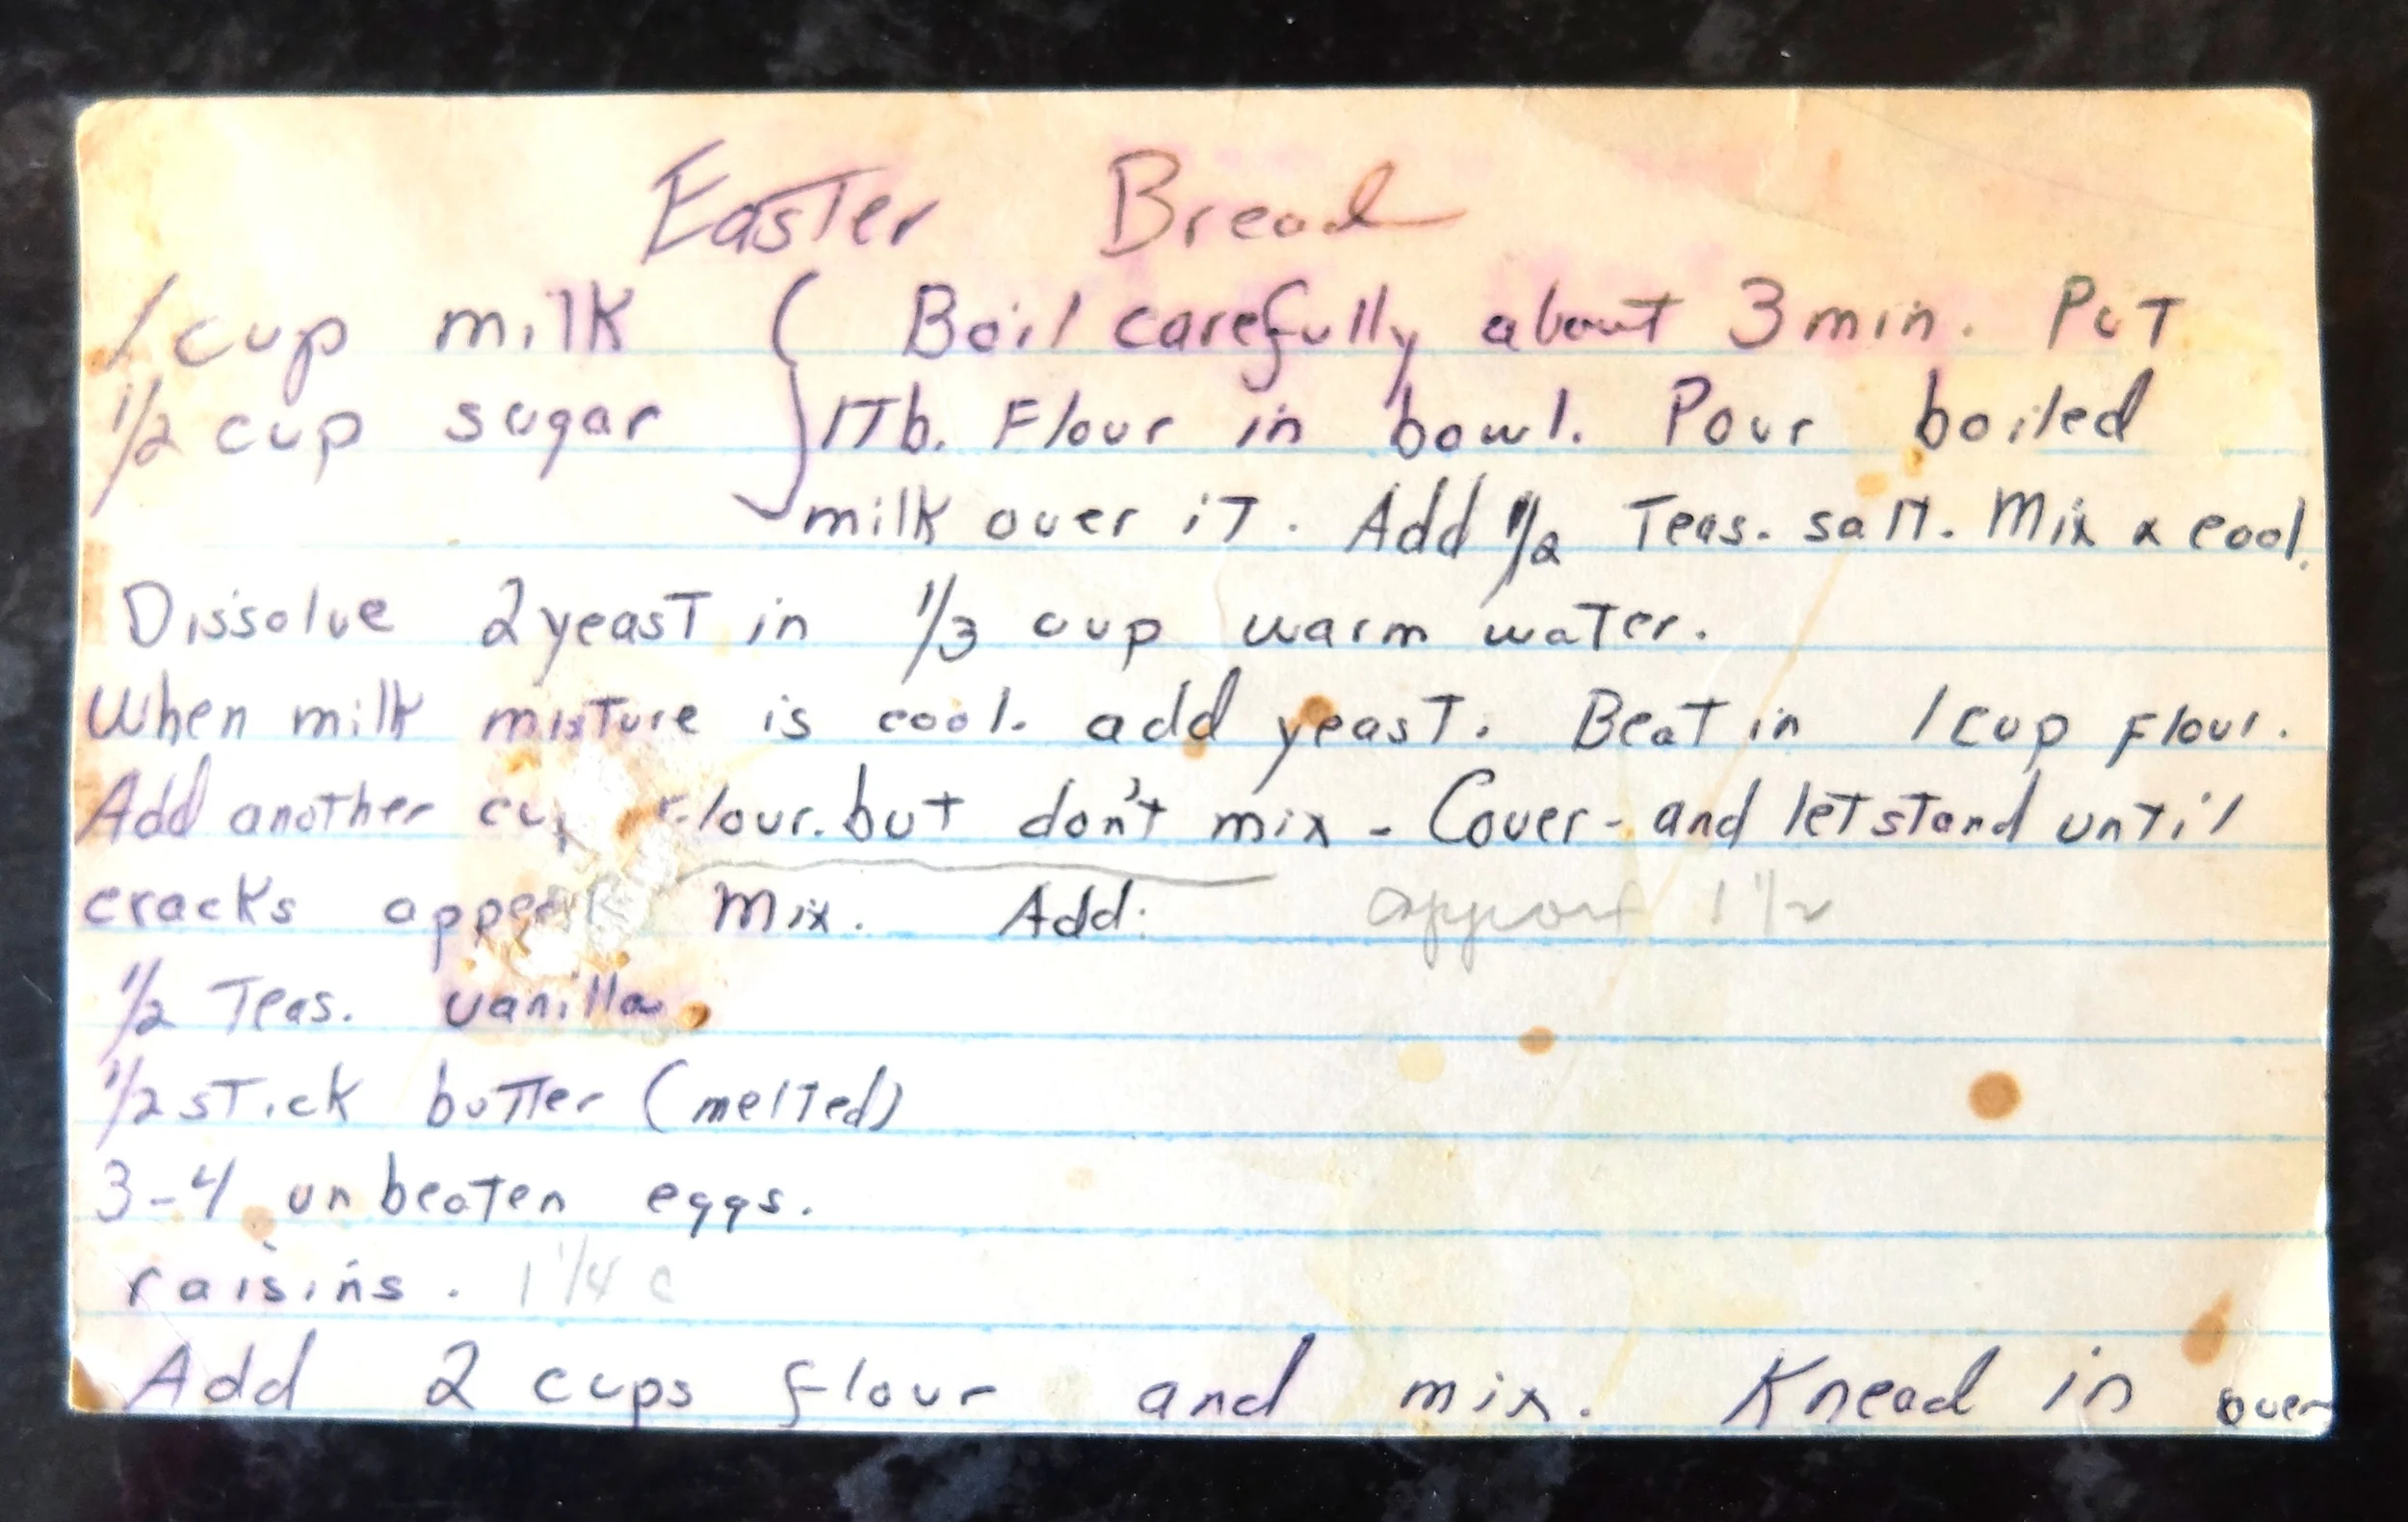 Easter Bread
1 cup milk { Boil carefully about 3 min. Put
1/2 cup sugar 1Tb. Flour in bowl. Pour boiled
milk over it. Add 1/2 Teas. salt. Mix & cool.
Dissolve 2 yeast in 1/3 cup warm water.
When milk mixture is cool. add yeast. Beat in 1 cup flour.
Add another cup flour. but don't mix - Cover - and let stand until
cracks appear. Mix. Add: 1 1/2
1/2 Teas. vanilla.
1/2 stick butter (melted)
3-4 unbeaten eggs.
raisins. 1 1/4 c
Add 2 cups flour and mix. Knead in over